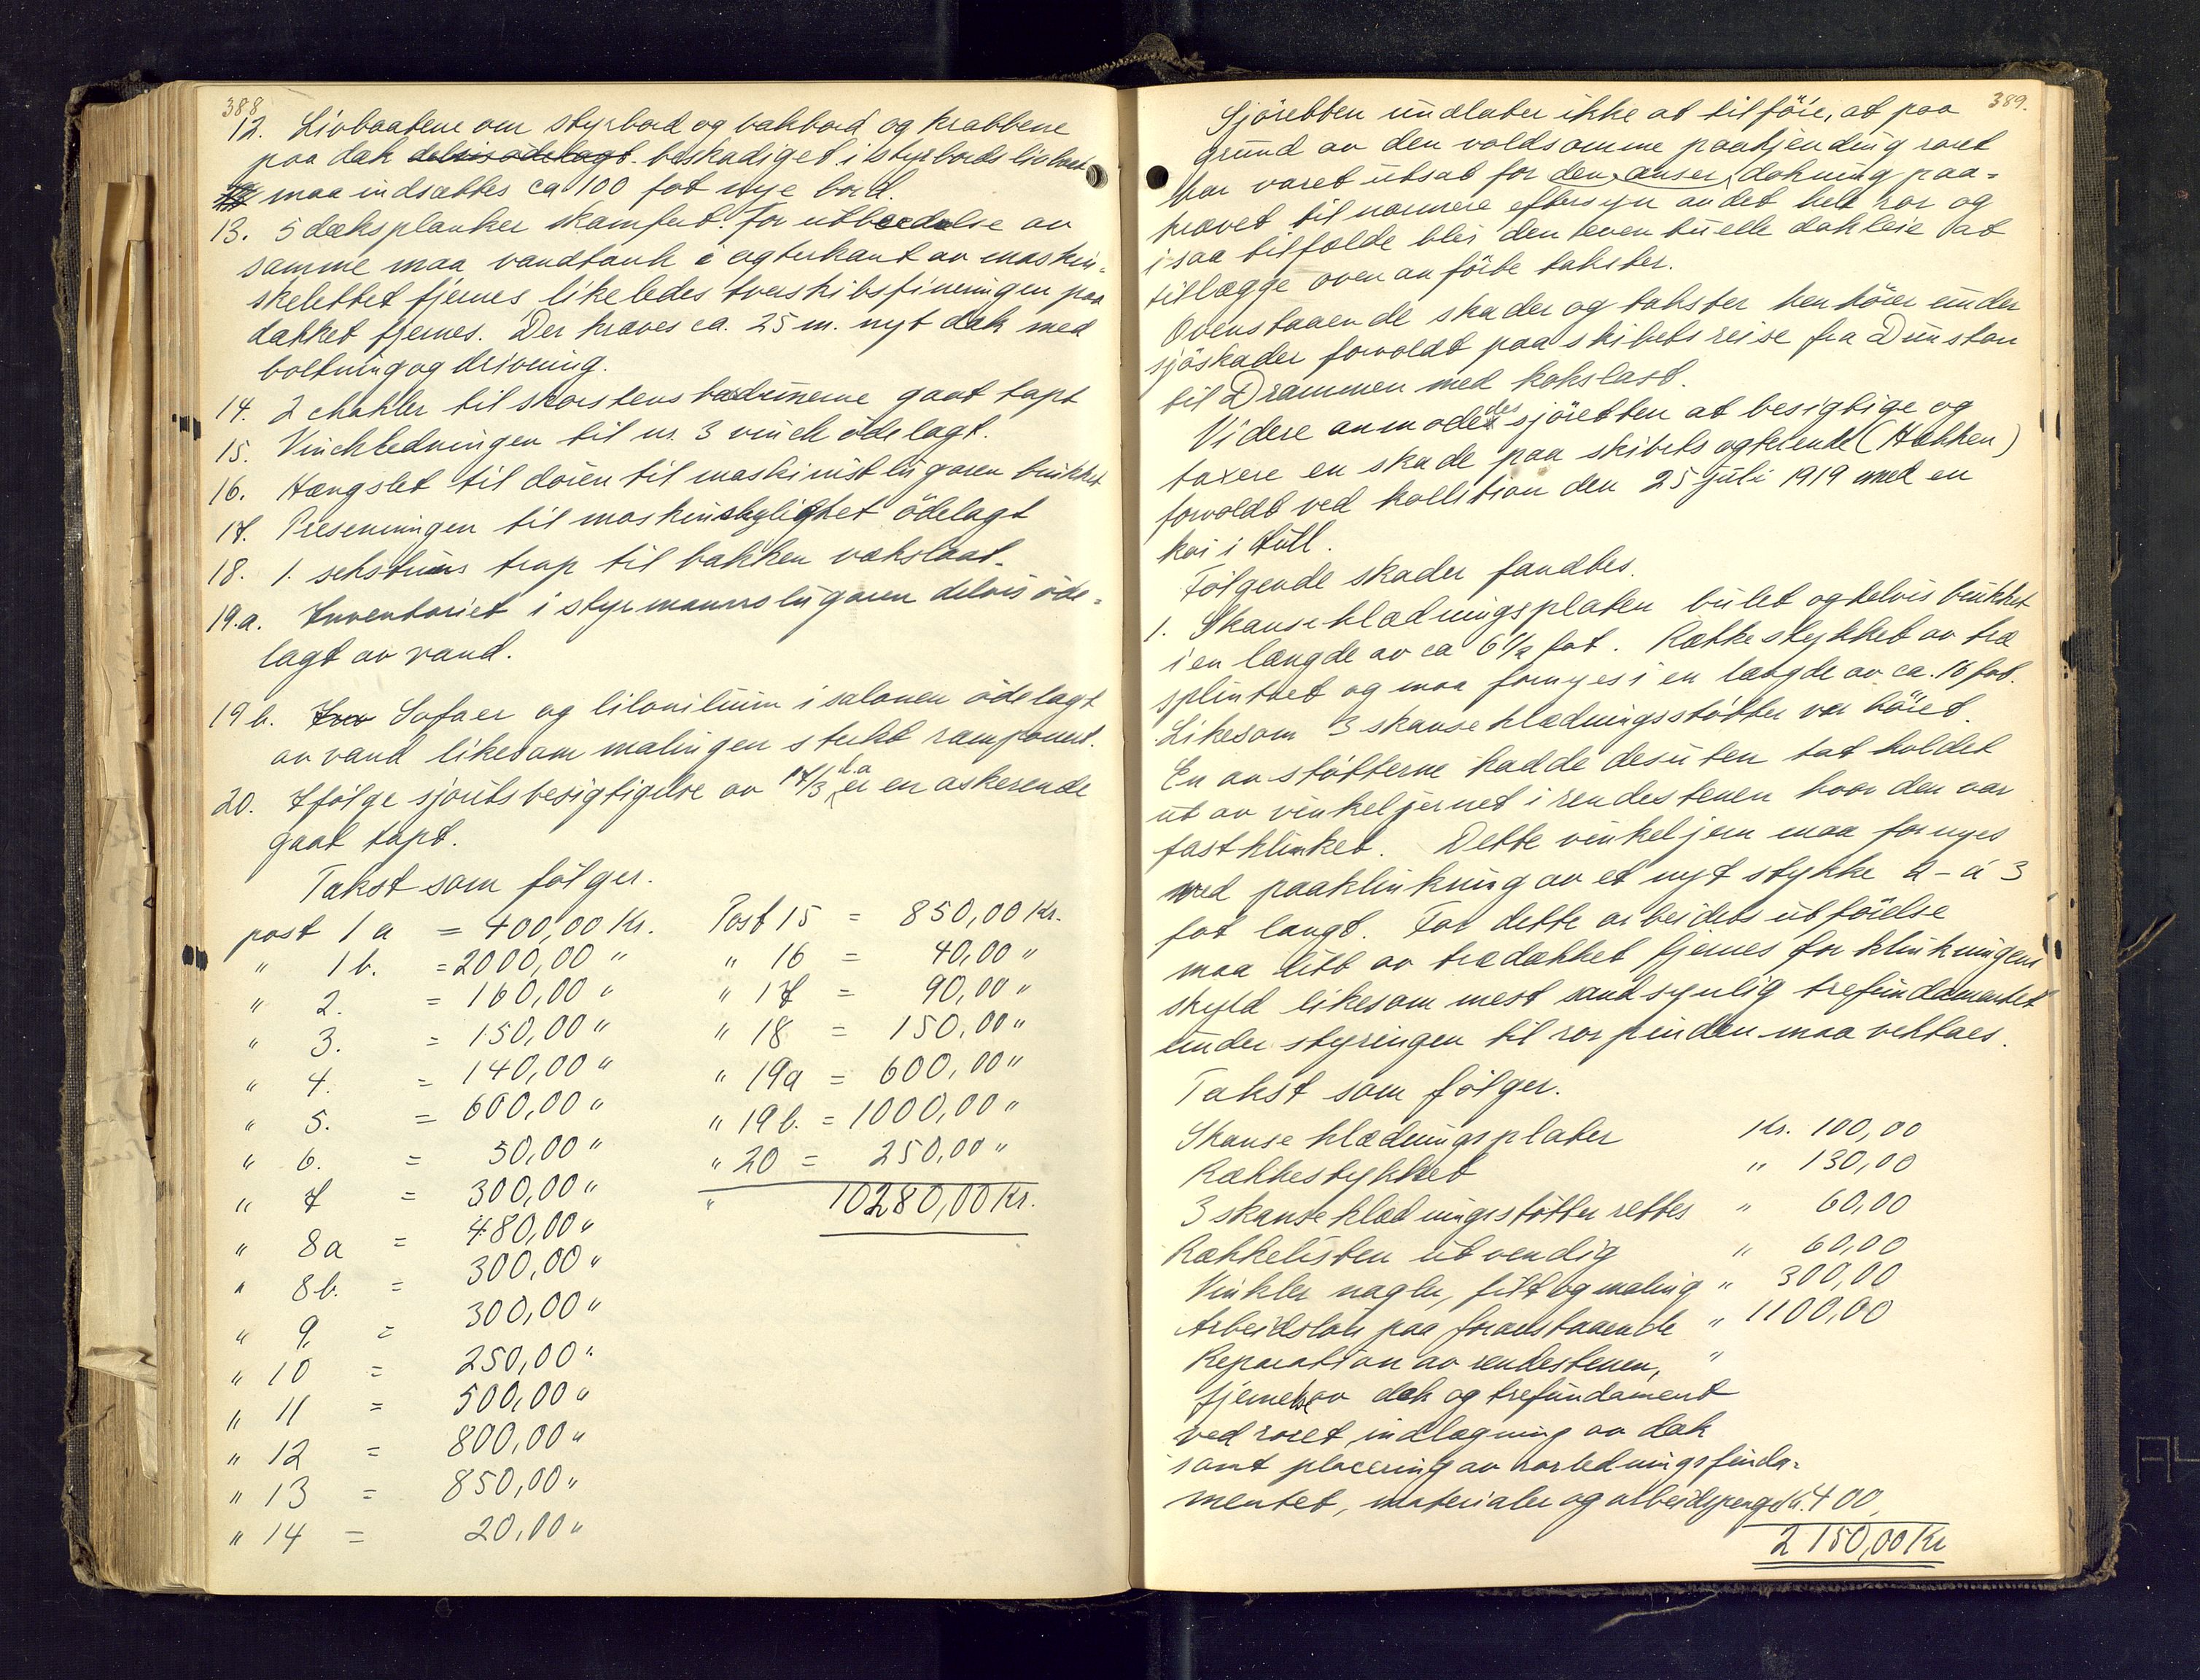 388
12. Livbaatene om styrbord og bakbord og krabbene
paa dæk delvis ødelagt. beskadiget i styrbords livbaat
maa indsættes ca 100 fot nye bord.
13. 5 dæksplanker skamfert. For utbedrelse av
samme maa vandtank i agterkant av maskin-
skelettet fjernes likeledes tverskibsfineringen paa
dækket fjernes. Der kræves ca. 25 m. nyt dæk med
boltning og drivning.
14. 2 chakler til skorstensbardunerne gaat tapt
15. Vinchledningen til nr. 3 vinch ödelagt.
16. Hængslet til dören til maskinistlugaren brukket
17. Preseningen til maskinskylightet ödelagt
18. 1. sekstrins trap til bakken vækslaat.
19.a. Inventariet i styrmannslugaren delvis öde-
lagt av vand.
19 b. Inv Sofaer og lilonilium i salonen ödelagt
av vand likesom malingen sterkt ramponert.
20. Ifölge sjöretsbesigtigelse av 17/3 d.a er en askerende
gaat tapt.
Takst som fölger.
post 1 a = 400,00 Kr. Post 15 = 850,00 Kr.
" 1 b. = 2000,00 " " 16 = 40,00 "
" 2. = 160,00 " " 17 = 90,00 "
" 3. = 150,00 " " 18 = 150,00 "
" 4. = 140,00 " " 19a = 600,00 "
" 5. = 600,00 " " 19 b. = 1000,00 "
" 6. = 50,00 " " 20 = 250,00 "
" 7 = 300,00 " " 10280,00 Kr.
" 8a = 480,00 "
" 8b. = 300,00 "
" 9. = 300,00 "
" 10 = 250,00 "
" 11 = 500,00 "
" 12 = 800,00 "
" 13 = 850,00 "
" 14 = 20,00 "
389.
Sjöretten undlater ikke at tilföie, at paa
grund av den voldsomme paakjending roret
har været utsat for den anser dokning paa-
krævet til nærmere eftersyn av det hele ror og
i saa tilfælde blir den eventuelle dokleie at
tillægge ovenanförte takster.
Ovenstaaende skader og takster henhörer under
sjöskader forvoldt paa skibets reise fra Dunston
til Drammen med kokslast.
Videre anmodedes sjöretten at besigtige og
taxere en skade paa skibets agterende (Hækken)
forvoldt ved kollision den 25 juli 1919 med en
kai i Hull.
Fölgende skader fandtes.
1. Skanseklædningsplaten bulet og delvis brukket
i en længde av ca 6 1/2 fot. Rækkestykket av træ
splintret og maa fornyes i en længde av ca. 16 fot.
Likesom 3 skanseklædningsstötter var böiet.
En av stötterne hadde desuten tat holdet
ut av vinkeljernet i rendestenen hvor den var
fastklinket. Dette vinkeljern maa fornyes
med paaklinkning av et nyt stykke 2 - á 3
fot langt. For dette arbeidets utförelse
maa litt av trædækket fjernes for klinkningens
skyld likesom mest sandsynlig trefundamentet
under styringen til rorpinden maa vektaes.
Takst som fölger.
Skanseklædningsplater Kr. 100,00
Rækkestykket " 130,00
3 skanseklædningsstötter rettes " 60,00
Rækkelisten utvendig " 60,00
Vinkler nagler, filt og maling " 300,00
Arbeidslön paa foranstaaende " 1100,00
Reparation av rendestenen, "
fjernelse av dæk og trefundament
ved roret, indlægning av dæk
samt placering av rorledningsfunda-
mentet, materialer og arbeidspenge Kr. 400
2 150,00 Kr